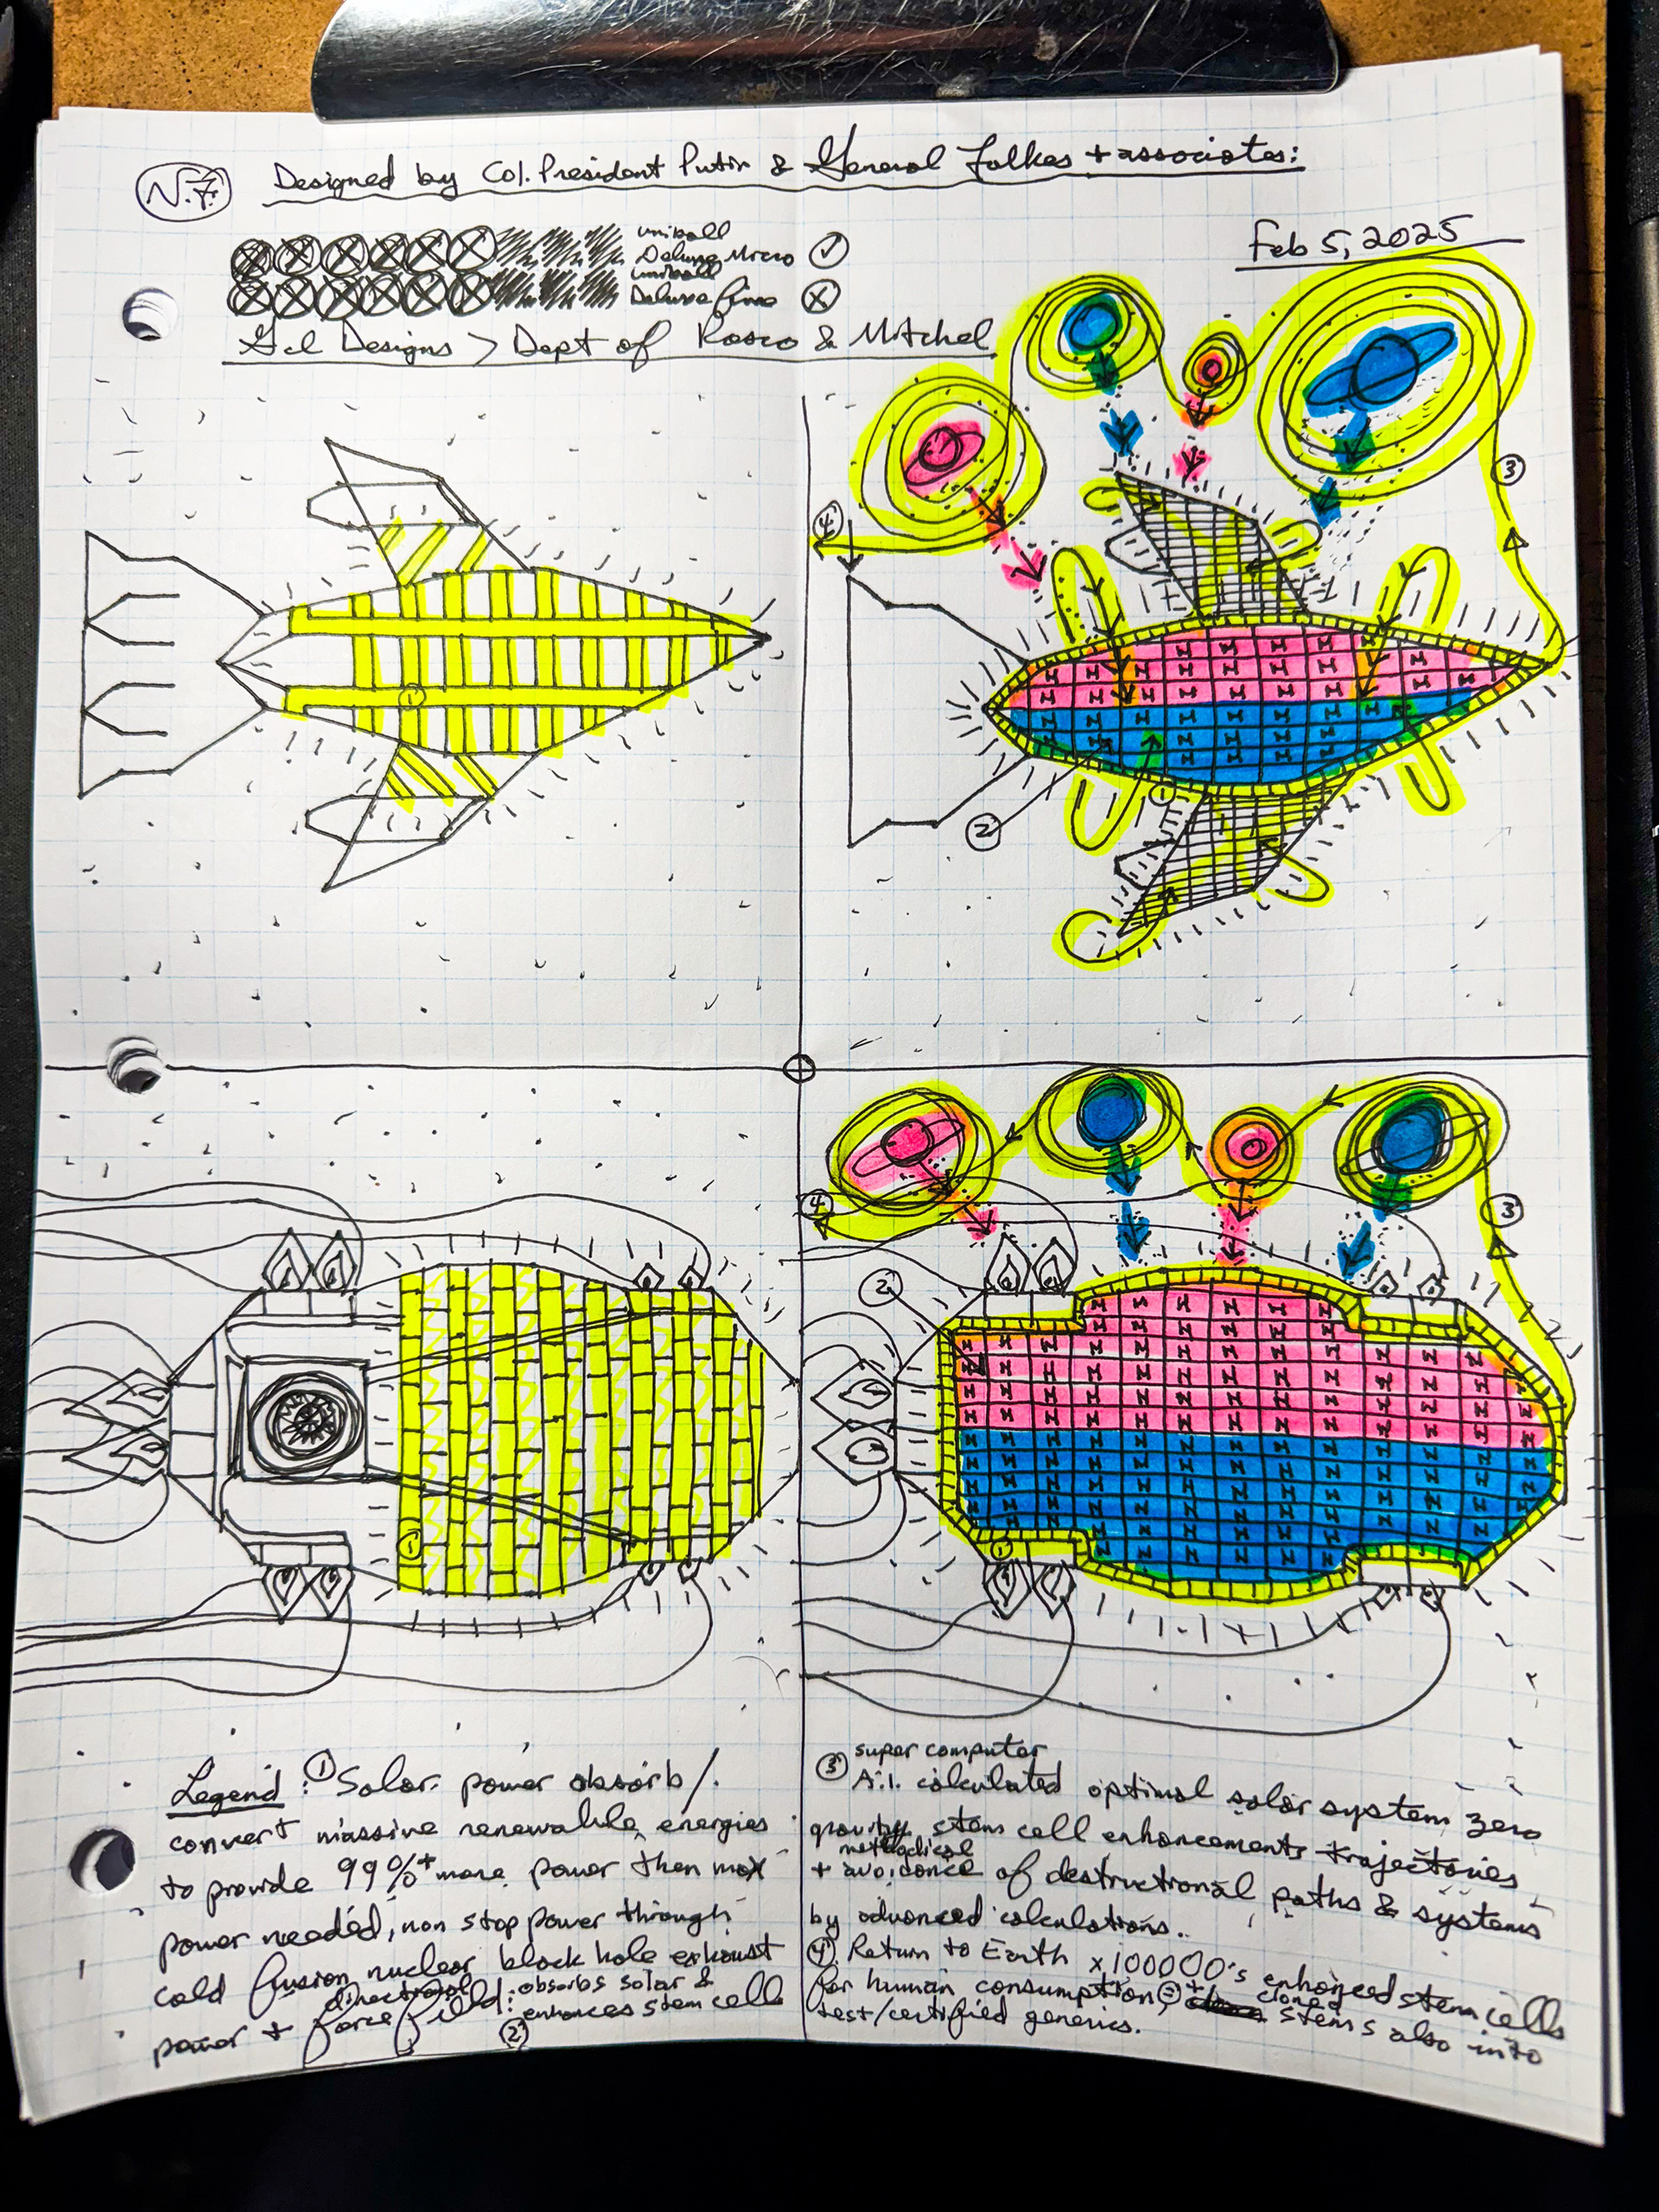 N.7.
Designed by Col. President Putin & General Folkes + associates:
Feb 5, 2025
uniball
Deluxe Micro
uniball
Deluxe fine
Gel Designs > Dept of Rosco & Mitchel
3
4
1
2
1
4
3
2
1
1
Legend: ① Solar power absorb/
convert massive renewable energies
to provide 99%+ more power then max
power needed, non stop power through
cold fusion nuclear black hole exhaust
directional
power + force field: absorbs solar &
② enhances stem cells
③ super computer
A.I. calculated optimal solar system zero
gravity stem cell enhancements trajectories
methodical
+ avoidance of destructional paths & systems
by advanced calculations..
④. Return to Earth x100000's enhanced stem cells
for human consumption, + cloned stems also into
test/certified generics.